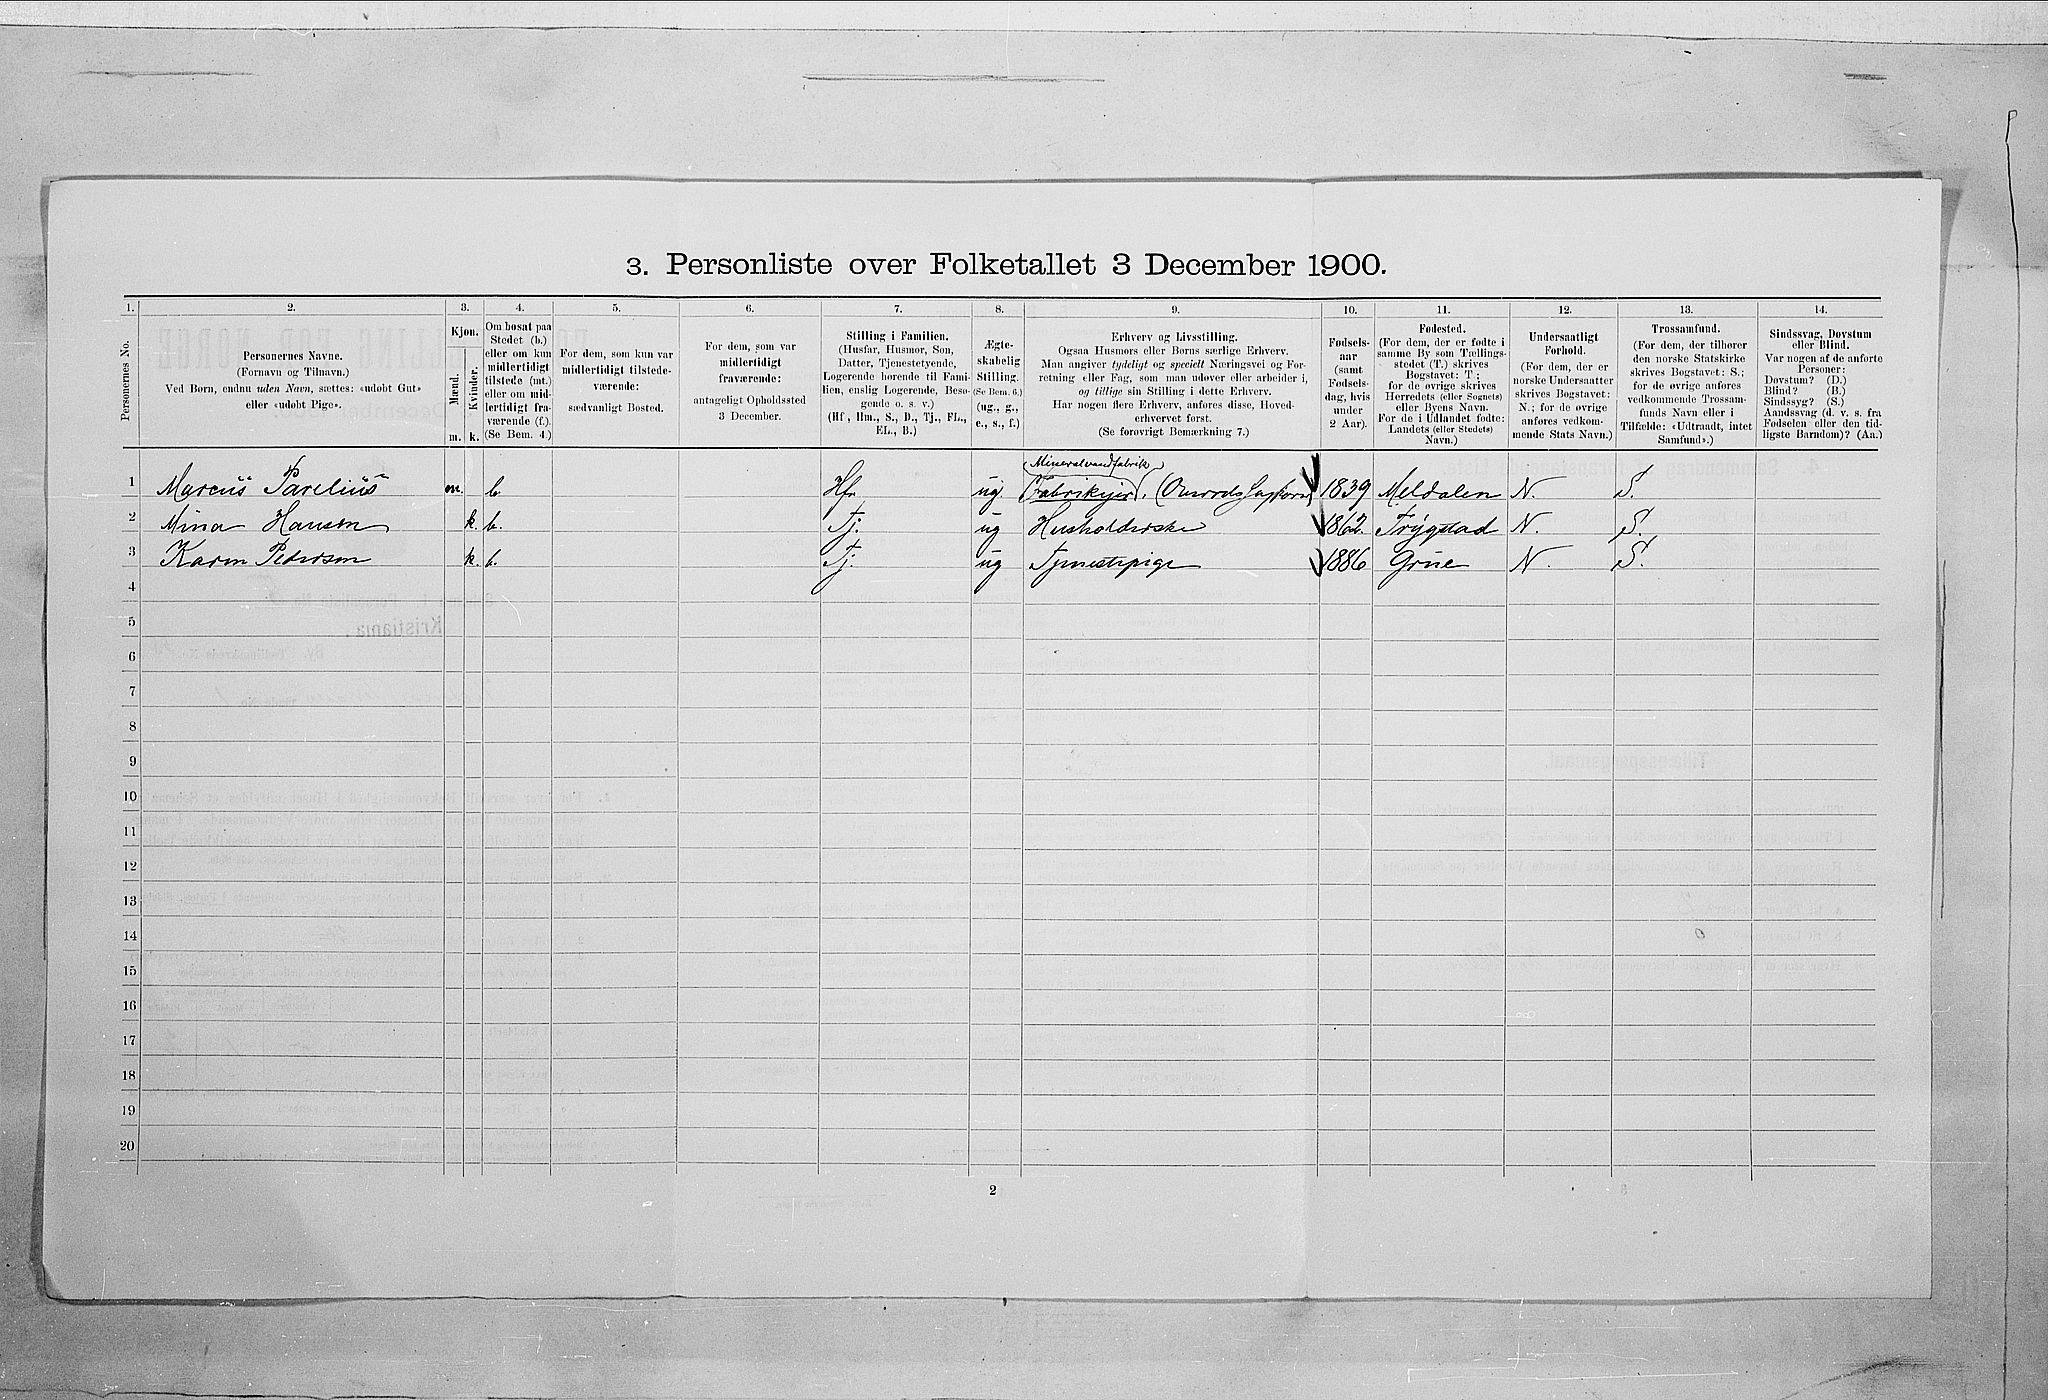 3. Personliste over Folketallet 3 December 1900.
1. 2. 3. 4. 5. 6. 7. 8. 9. 10. 11. 12. 13. 14.
Personernes No.
Personernes Navne.
(Fornavn og Tilnavn.)
Ved Børn, endnu uden Navn, sættes: «udøbt Gut»
eller «udøbt Pige».
Kjøn.
Mænd.
Kvinder.
m. k.
Om bosat paa
Stedet (b.)
eller om kun
midlertidigt
tilstede (mt.)
eller om mid-
lertidigt fra-
værende (f.).
(Se Bem. 4.)
For dem, som kun var
midlertidigt tilstede-
værende:
sædvanligt Bosted.
For dem, som var
midlertidigt
fraværende:
antageligt Opholdssted
3 December.
Stilling i Familien.
(Husfar, Husmor, Søn,
Datter, Tjenestetyende,
Logerende hørende til Fami-
lien, enslig Logerende, Besø-
gende o. s. v.)
(Hf., Hm., S., D., Tj., FL.,
EL., B.)
Ægte-
skabelig
Stilling.
(Se Bem. 6.)
(ug., g.,
e., s., f.)
Erhverv og Livsstilling.
Ogsaa Husmors eller Børns særlige Erhverv.
Man angiver tydeligt og specielt Næringsvei og For-
retning eller Fag, som man udøver eller arbeider i,
og tillige sin Stilling i dette Erhverv.
Har nogen flere Erhverv, anføres disse, Hoved-
erhvervet først.
(Se forøvrigt Bemærkning 7.)
Fødsels-
aar
(samt
Fødsels-
dag, hvis
under
2 Aar).
Fødested.
(For dem, der er fødte i
samme By som Tællings-
stedet (T.) skrives
Bogstavet: T;
for de øvrige skrives
Herredets (eller Sognets)
eller Byens Navn.
For de i Udlandet fødte:
Landets (eller Stedets)
Navn.)
Undersaatligt
Forhold.
(For dem, der er
norske Undersaatter
skrives Bogstavet:
N.; for de øvrige
anføres vedkom-
mende Stats Navn.)
Trossamfund.
(For dem, der tilhører
den norske Statskirke
skrives Bogstavet: S.;
for de øvrige anføres
vedkommende Trossam-
funds Navn eller i
Tilfælde: «Udtraadt, intet
Samfund».)
Sindssvag, Døvstum
eller Blind.
Var nogen af de anførte
Personer:
Døvstum? (D.)
Blind? (B.)
Sindssyg? (S.)
Aandssvag (d. v. s. fra
Fødselen eller den tid-
ligste Barndom)? (Aa.)
Mineralvandfabrik
1 Marcus Parelius m. b. Hf. ug. Fabrikejer. 1839 Meldalen N. S.
2 Mina Hansen k. b. Tj. ug Husholderske 1862. Trygstad N. S.
3 Karen Pedersen k. b. Tj. ug Tjenestepige 1886 Grue N. S.
4
5
6
7
8
9
10
11
12
13
14
15
16
17
18
19
20
2